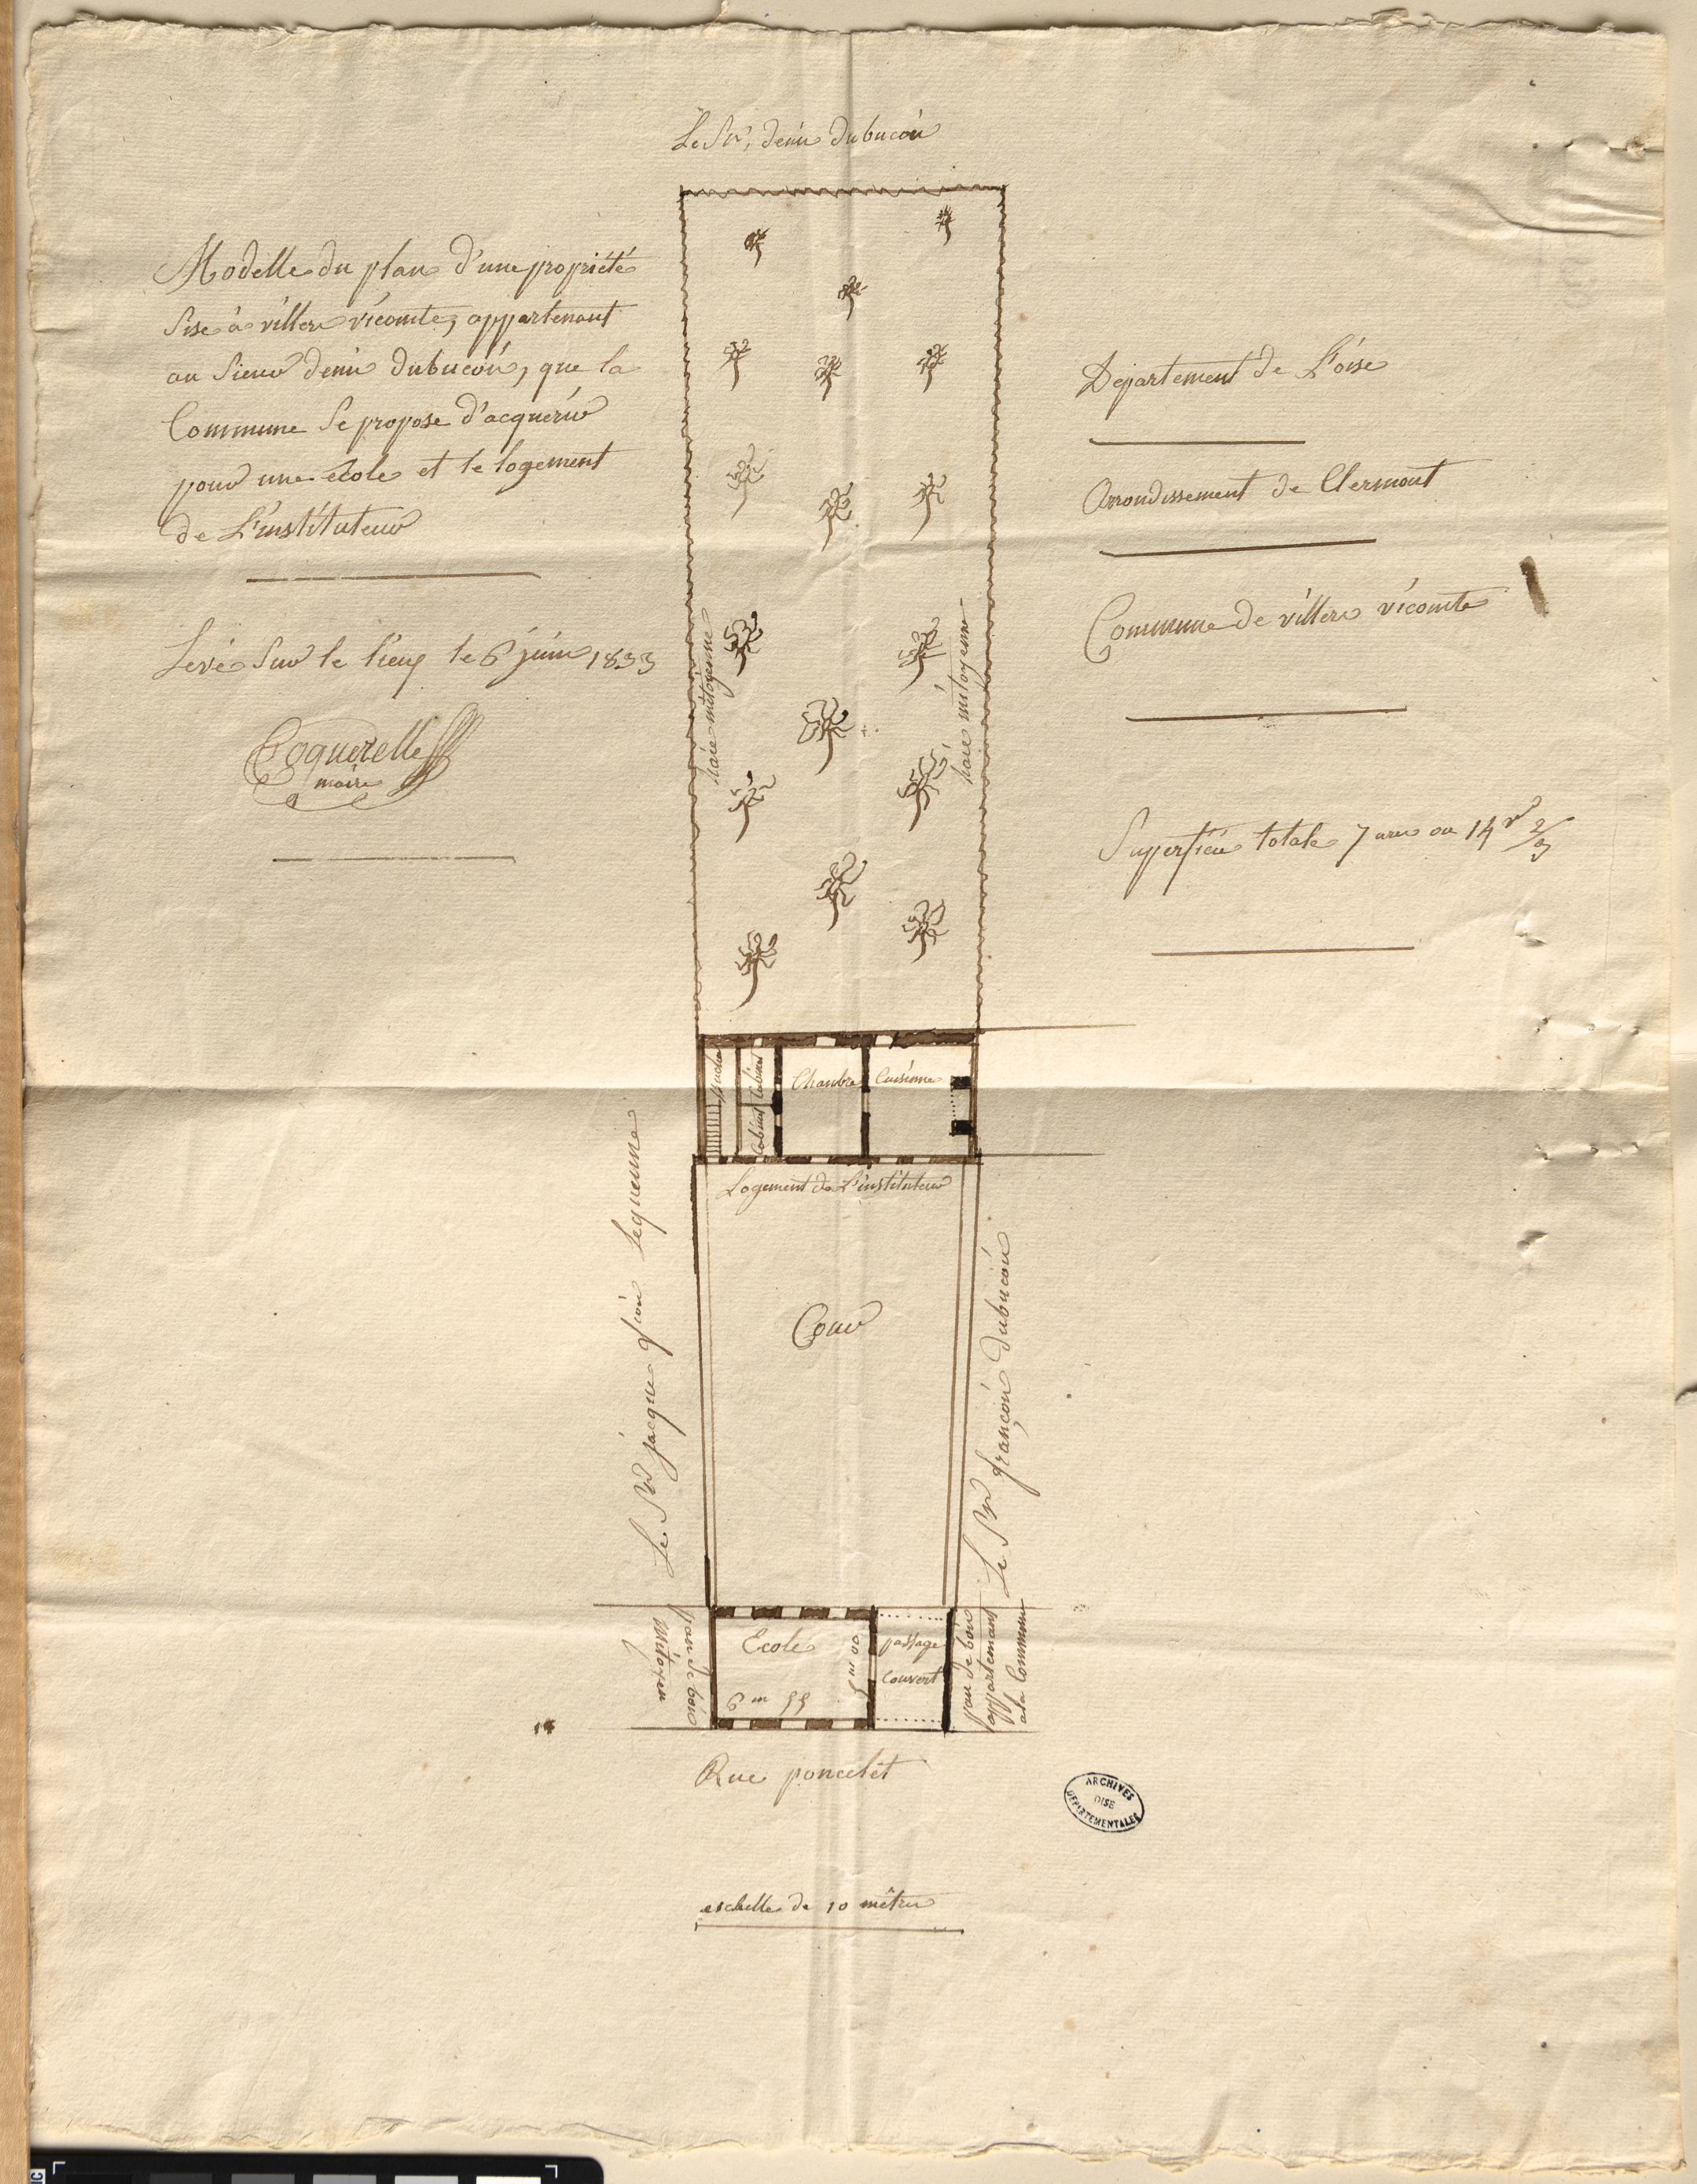 Le Sr, denis dubucois
Modelle du plan d'une propriété
Sise à villers vicomte, appartenant
au Sieur denis dubucois, que la
Commune Se propose d'acquérir
pour une école et le logement
de L'instituteur
Levé Sur le lieux le 6 juin 1833
Coquerelle
maire
Département de L'oise
Arrondissement de Clermont
Commune de villers vicomte
Superficie totale 7 ares ou 14 vs 2/3
haie mitoyenne
haie mitoyenne
Cabinet
Cabinet
Chambre
Cuisinne
Logement de L'instituteur
Cour
Le Sr jacque Lequenne
Le Sr françois dubucois
Ecole
6 m 55
5 m 00
passage
couvert
pan de bois
mitoyen
pan de bois
appartenant
a la Commune
Rue poncelet
eschelle de 10 mêtres
ARCHIVES
OISE
DEPARTEMENTALES